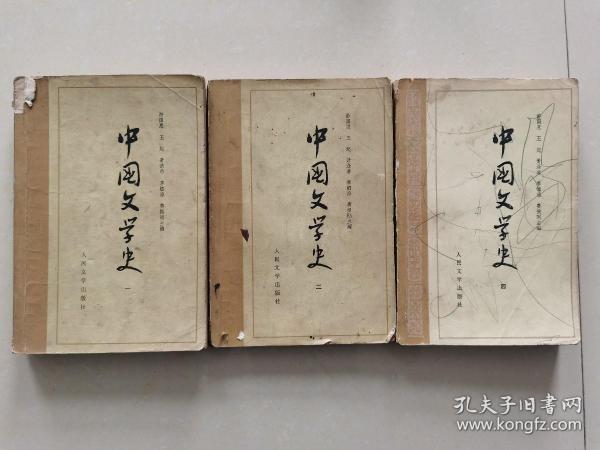 游国恩 王起 萧涤非 季镇淮 费振刚主编
中国文学史
一
人民文学出版社
游国恩 王起 萧涤非 季镇淮 费振刚主编
中国文学史
二
人民文学出版社
游国恩 王起 萧涤非 季镇淮 费振刚主编
中国文学史
四
人民文学出版社
孔夫子旧书网
www.kongfz.com